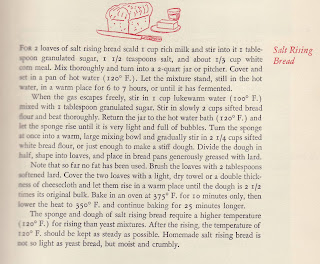 Salt Rising
Bread
FOR 2 loaves of salt rising bread scald 1 cup rich milk and stir into it 1 table-
spoon granulated sugar, 1 1/2 teaspoons salt, and about 1/3 cup white
corn meal. Mix thoroughly and turn into a 2-quart jar or pitcher. Cover and
set in a pan of hot water (120° F.) Let the mixture stand, still in the hot
water, in a warm place for 6 to 7 hours, or until it has fermented.
When the gas escapes freely, stir in 1 cup lukewarm water (100° F.)
mixed with 1 tablespoon granulated sugar. Stir in slowly 2 cups sifted bread
flour and beat thoroughly. Return the jar to the hot water bath (120° F.) and
let the sponge rise until it is very light and full of bubbles. Turn the sponge
at once into a warm, large mixing bowl and gradually stir in 2 1/4 cups sifted
white bread flour, or just enough to make a stiff dough. Divide the dough in
half, shape into loaves, and place in bread pans generously greased with lard.
Note that so far no fat has been used. Brush the loaves with 2 tablespoons
softened lard. Cover the two loaves with a light, dry towel or a double thick-
ness of cheesecloth and let them rise in a warm place until the dough is 2 1/2
times its original bulk. Bake in an oven at 375° F. for 10 minutes only, then
lower the heat to 350° F. and continue baking for 25 minutes longer.
The sponge and dough of salt rising bread require a higher temperature
(120° F.) for rising than yeast mixtures. After the rising, the temperature of
120° F. should be kept as steady as possible. Homemade salt rising bread is
not so light as yeast bread, but moist and crumbly.